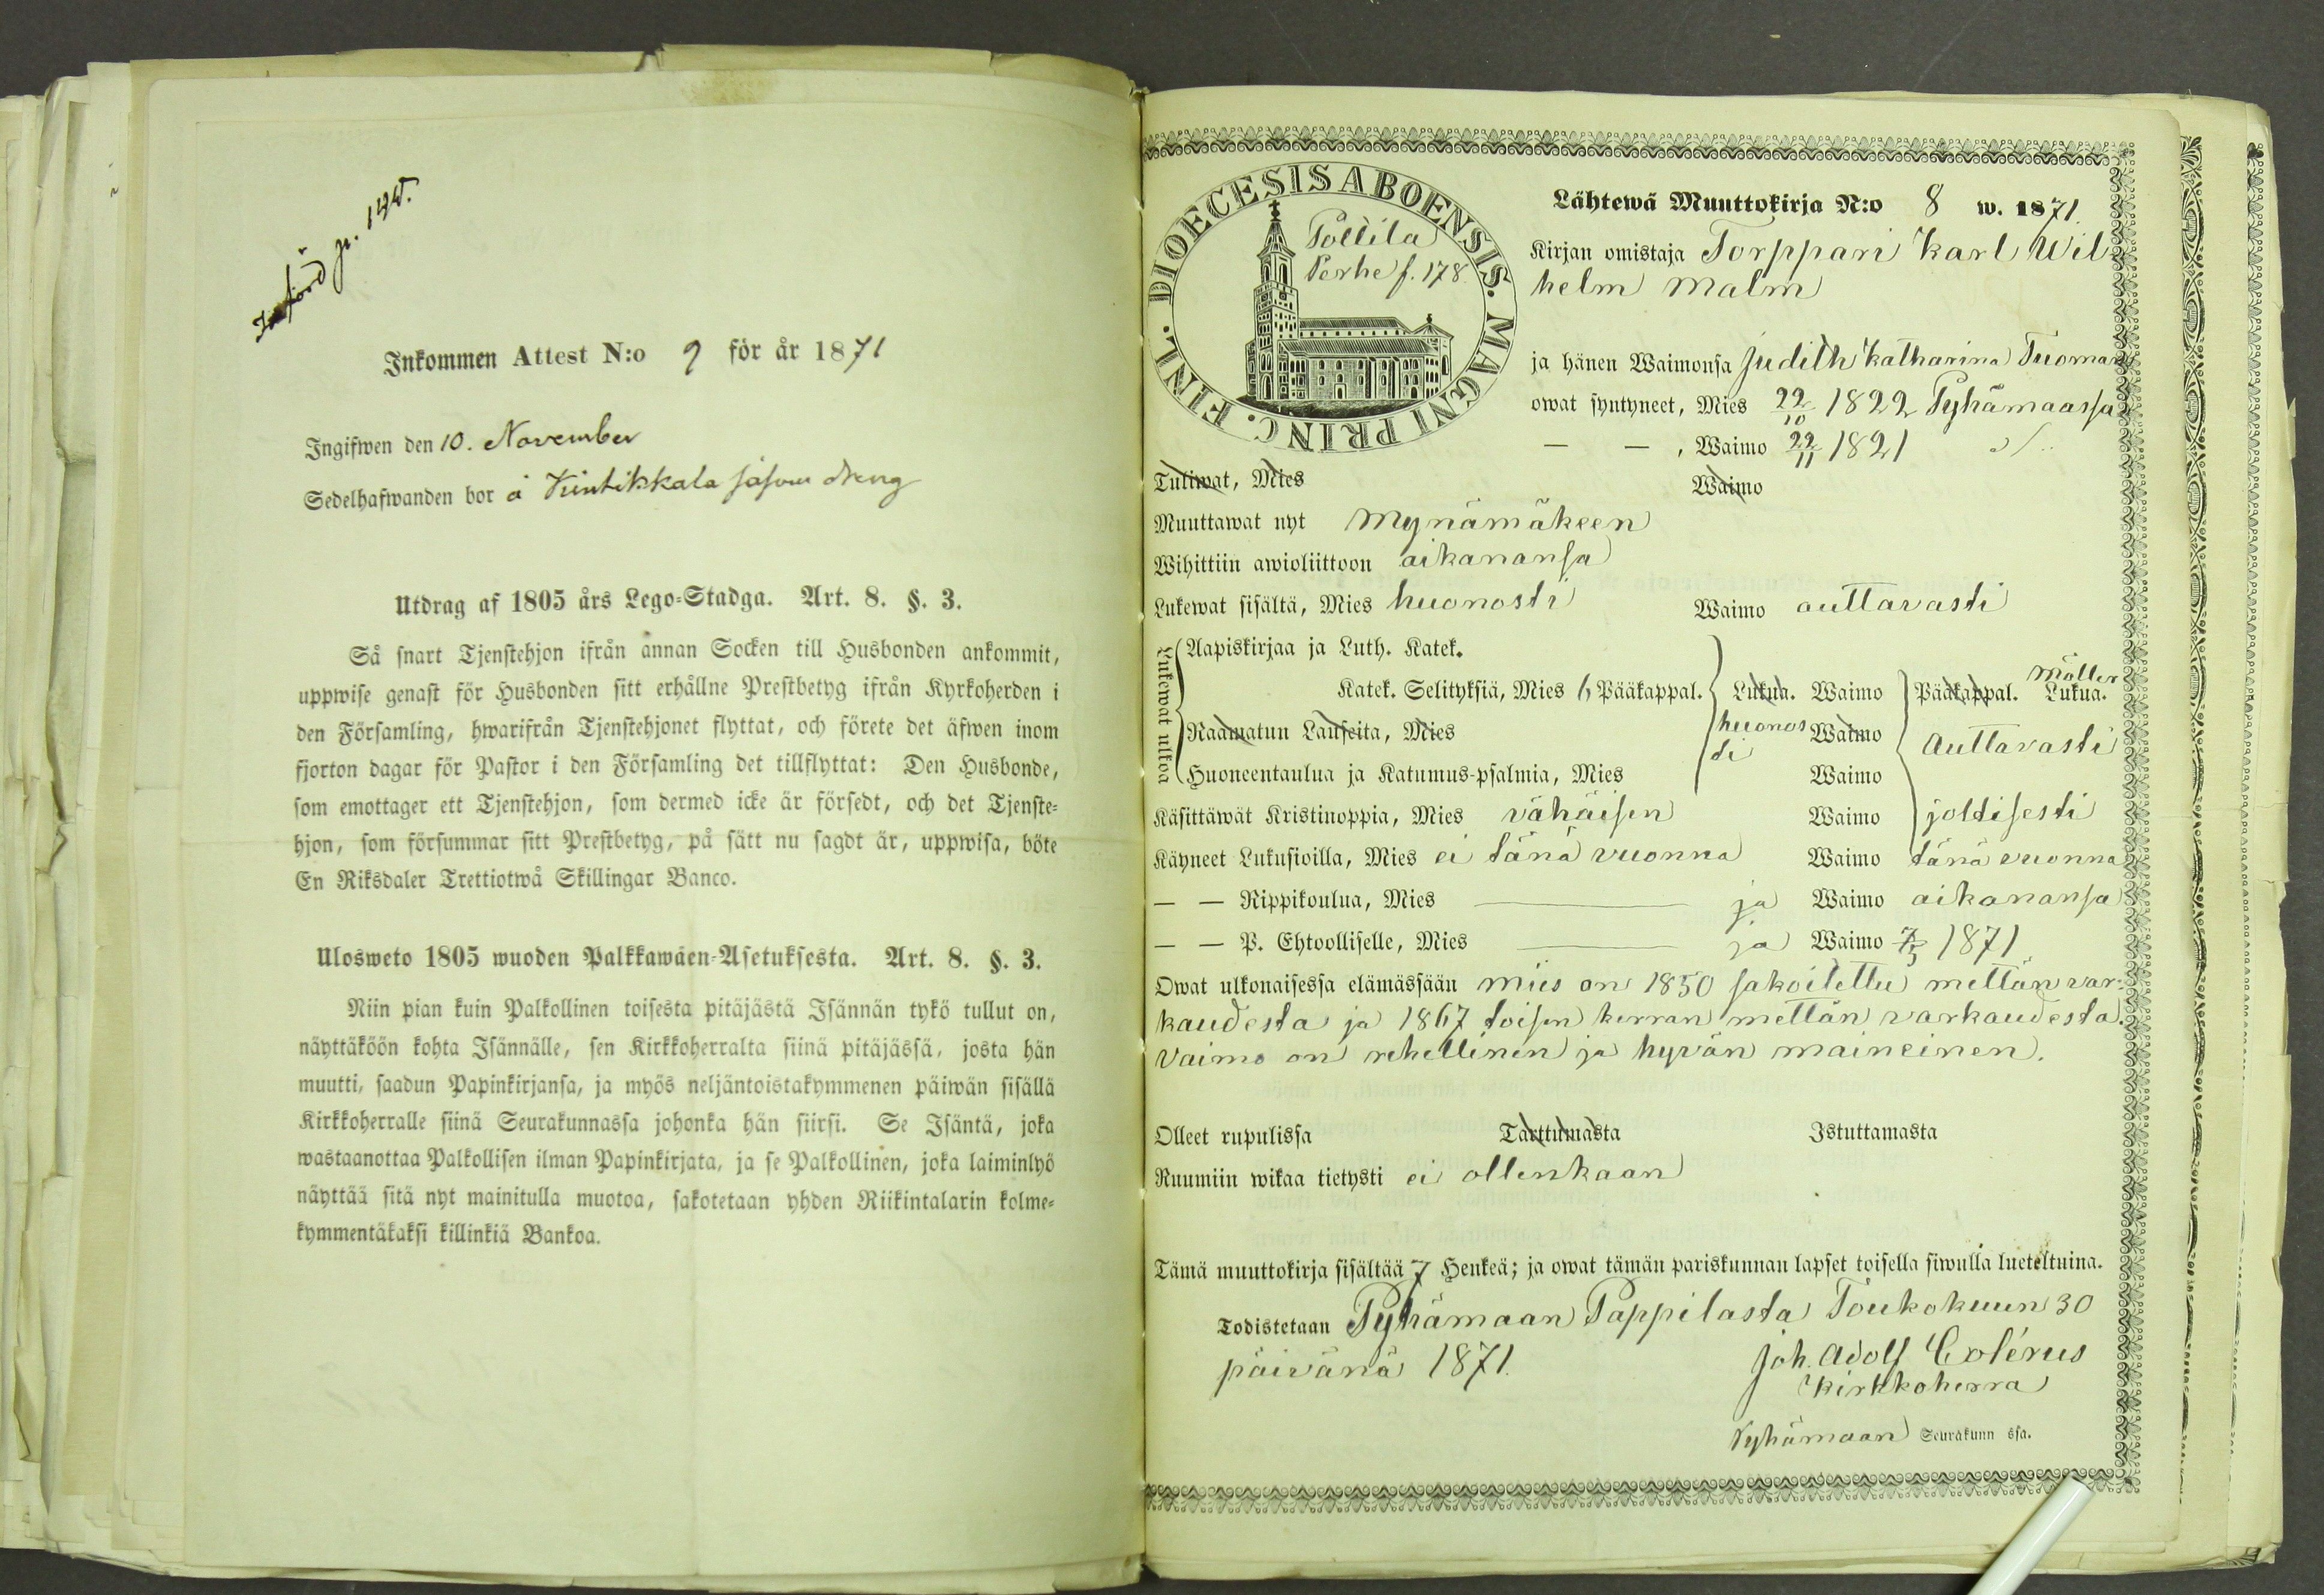 Införd p. 145.
Inkommen Attest N:o 9 för år 1871
Ingifwen den 10. November
Sedelhafwanden bor å Kintikkala såsom dreng
Utdrag af 1805 års Lego-Stadga. Art. 8. §. 3.
Så snart Tjenstehjon ifrån annan Socken till Husbonden ankommit,
uppwise genast för Husbonden sitt erhållne Prestbetyg ifrån Kyrkoherden i
den Församling, hwarifrån Tjenstehjonet flyttat, och förete det äfwen inom
fjorton dagar för Pastor i den Församling det tillflyttat: Den Husbonde,
som emottager ett Tjenstehjon, som dermed icke är försedt, och det Tjenste-
hjon, som försummar sitt Prestbetyg, på sätt nu sagdt är, uppwisa, böte
En Riksdaler Trettiotwå Skillingar Banco.
Ulosweto 1805 wuoden Palkkawäen-Asetuksesta. Art. 8. §. 3.
Niin pian kuin Palkollinen toisesta pitäjästä Isännän tykö tullut on,
näyttäköön kohta Isännälle, sen Kirkkoherralta siinä pitäjässä, josta hän
muutti, saadun Papinkirjansa, ja myös neljäntoistakymmenen päiwän sisällä
Kirkkoherralle siinä Seurakunnassa johonka hän siirsi. Se Isäntä, joka
wastaanottaa Palkollisen ilman Papinkirjata, ja se Palkollinen, joka laiminlyö
näyttää sitä nyt mainitulla muotoa, sakotetaan yhden Riikintalarin kolme-
kymmentäkaksi killinkiä Bankoa.
DIOECESIS ABOENSIS. MAGNI PRINC. FINL.
Pollila
Perhe f. 178
Lähtewä Muuttokirja N:o 8 w. 1871
Kirjan omistaja Torppari Karl Wil-
helm Malm
ja hänen Waimonsa Judith Katharina Tuomar
owat syntyneet, Mies 22/10 1822 Pyhämaassa
— — , Waimo 22/11 1821
Tuliwat, Mies Waimo
Muuttawat nyt Mynämäkeen
Wihittiin awioliittoon aikanansa
Lukewat sisältä, Mies huonosti Waimo auttavasti
Lukewat ulkoa
Aapiskirjaa ja Luth. Katek.
Katek. Selityksiä, Mies 6 Pääkappal. Lukua. Waimo Pääkappal. Möller Lukua.
Raamatun Lauseita, Mies huonos Waimo Auttavasti
Huoneentaulua ja Katumus-psalmia, Mies ti Waimo
Käsittäwät Kristinoppia, Mies vähäisen Waimo joltisesti
Käyneet Lukusioilla, Mies ei tänä vuonna Waimo tänä vuonna
— — Rippikoulua, Mies ja Waimo aikanansa
— — P. Ehtoolliselle, Mies ja Waimo 7/5 1871
Owat ulkonaisessa elämässään mies on 1850 sakoitettu mettän var-
kaudesta ja 1867 toisen kerran mettän varkaudesta.
Vaimo on rehellinen ja hyvän maineinen.
Olleet rupulissa Tarttumasta Istuttamasta
Ruumiin wikaa tietysti ei ollenkaan
Tämä muuttokirja sisältää 7 Henkeä; ja owat tämän pariskunnan lapset toisella siwulla lueteltuina.
Todistetaan Pyhämaan Pappilasta Toukokuun 30
päivänä 1871.
Joh. Adolf Colérus
Kirkkoherra
Pyhämaan Seurakunnassa.